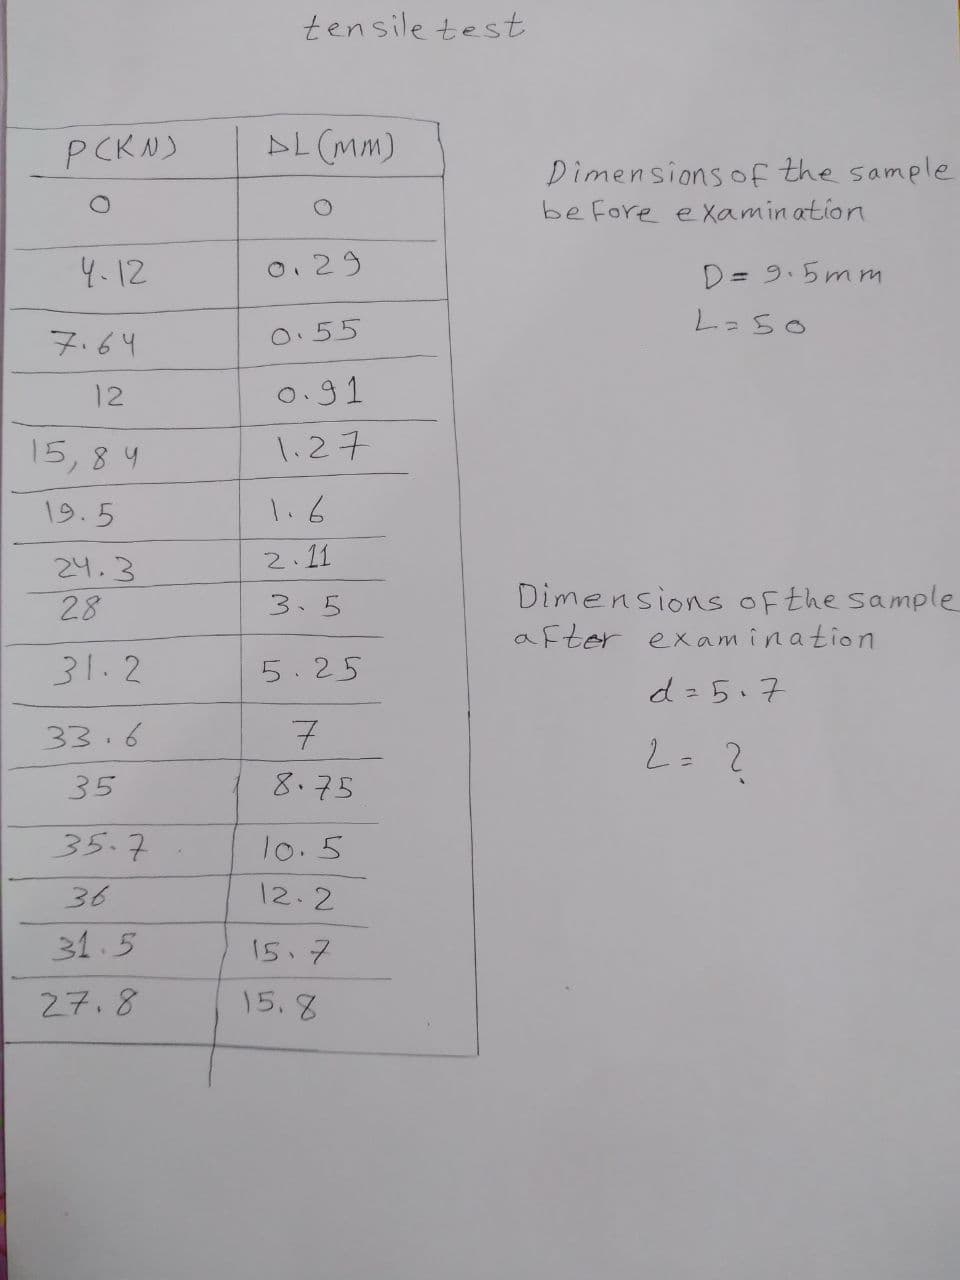 tensile test
P(KN) ΔL(mm)
0 0
4.12 0.29
7.64 0.55
12 0.91
15,84 1.27
19.5 1.6
24.3 2.11
28 3.5
31.2 5.25
33.6 7
35 8.75
35.7 10.5
36 12.2
31.5 15.7
27.8 15.8
Dimensions of the sample
before examination
D = 9.5mm
L = 50
Dimensions of the sample
after examination
d = 5.7
L = ?